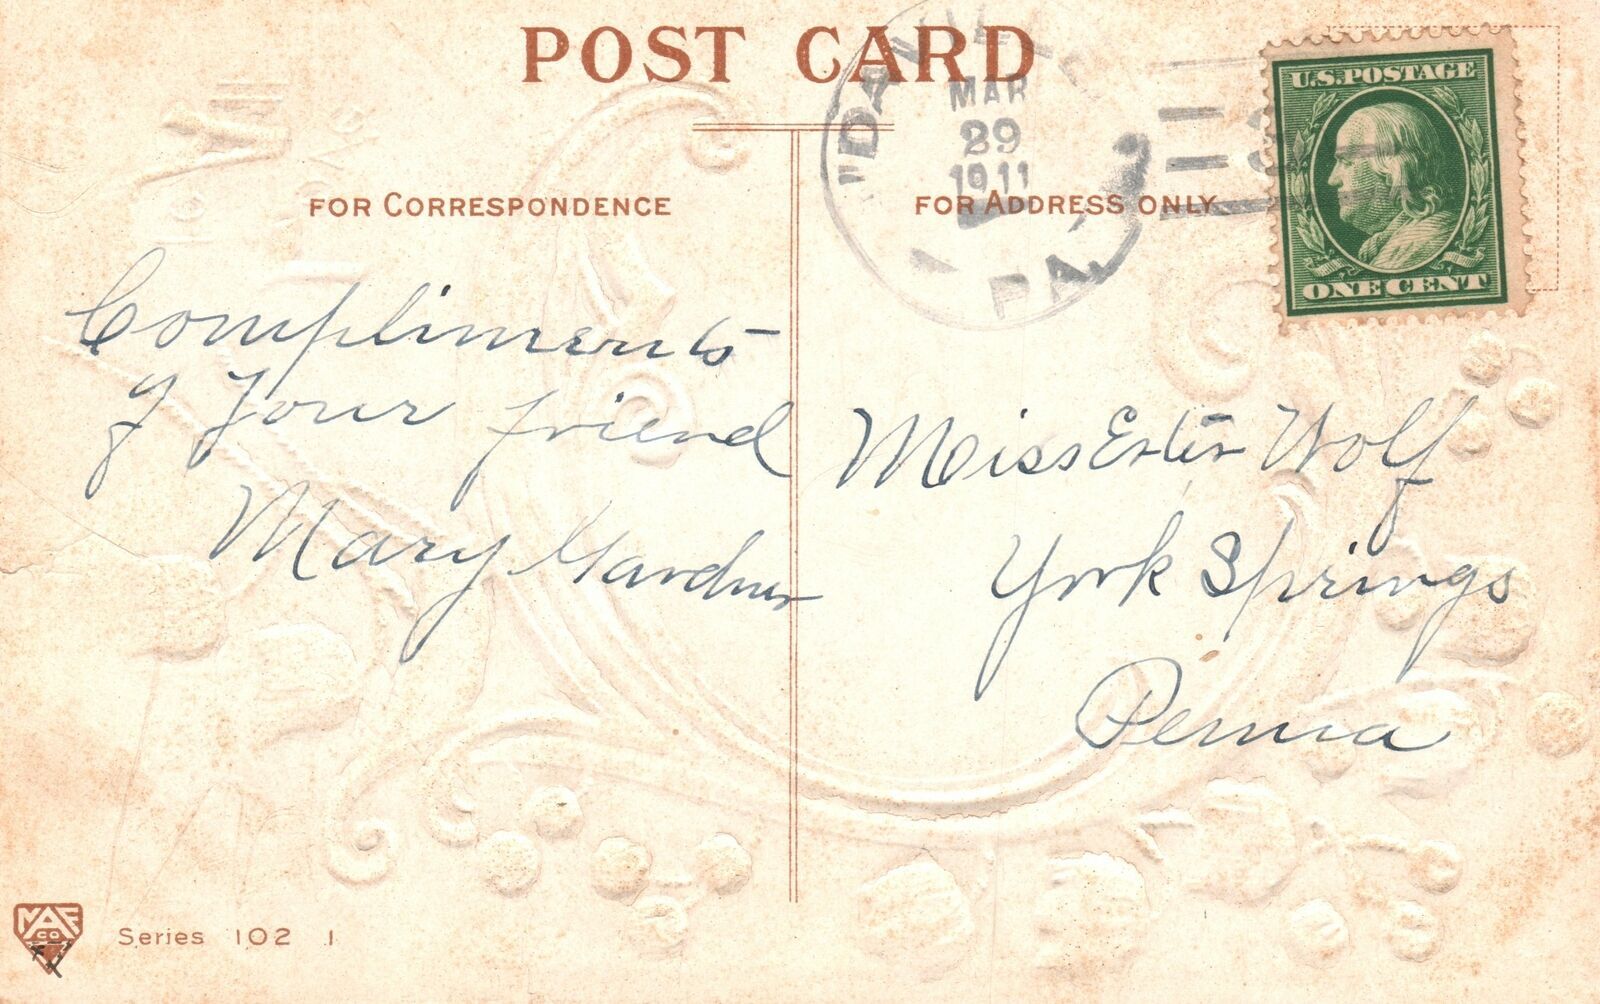 POST CARD
DAVILLE
MAR
29
1911
PA.
U.S. POSTAGE
ONE CENT
FOR CORRESPONDENCE
FOR ADDRESS ONLY
Compliments
of your friend
Mary Gardner
Miss Ester Wolf
York Springs
Penna
MAF
CO
Series 102 1